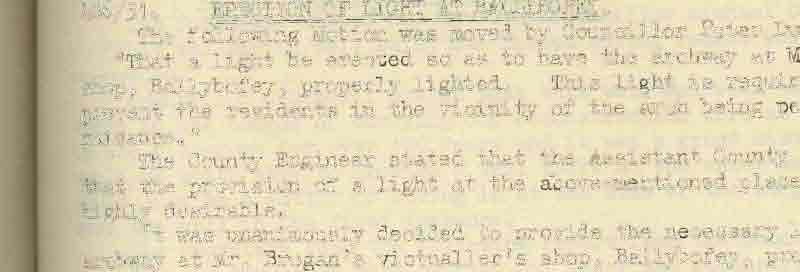 ERECTION OF LIGHT AT BALLYBOFEY.
The following Motion was moved by Councillor Peter
"That a light be erected so as to have the archway at
shop, Ballybofey, properly lighted. This light is
prevent the residents in the vicinity of the arch being
nuisance."
The County Engineer stated that the Assistant County
that the provision of a light at the above-mentioned place
highly desirable.
It was unanimously decided to provide the necessary
archway at Mr. Brogan's victualler's shop, Ballybofey,